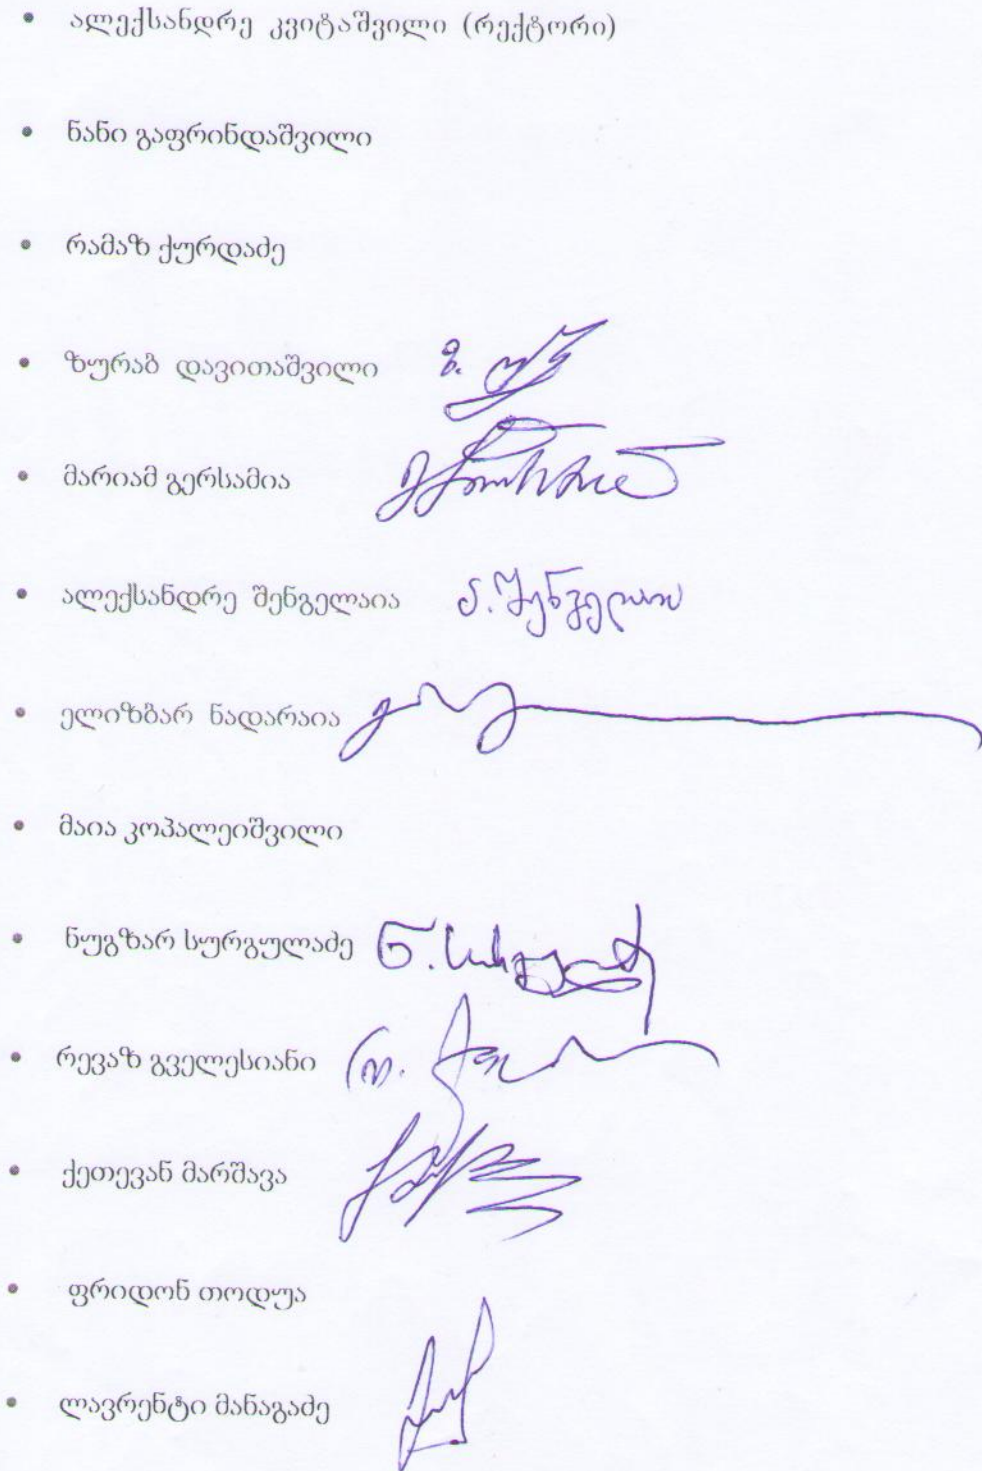 • ალექსანდრე კვიტაშვილი (რექტორი)
• ნანი გაფრინდაშვილი
• რამაზ ქურდაძე
• ზურაბ დავითაშვილი ზ.
• მარიამ გერსამია
• ალექსანდრე შენგელაია ა. შენგელაია
• ელიზბარ ნადარაია
• მაია კოპალეიშვილი
• ნუგზარ სურგულაძე ნ. სურგულაძე
• რევაზ გველესიანი რ.
• ქეთევან მარშავა
• ფრიდონ თოდუა
• ლავრენტი მანაგაძე